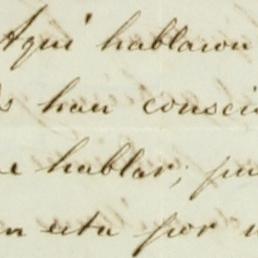 Aqui hablaron
s han consci
e hablar; pu
n esta por